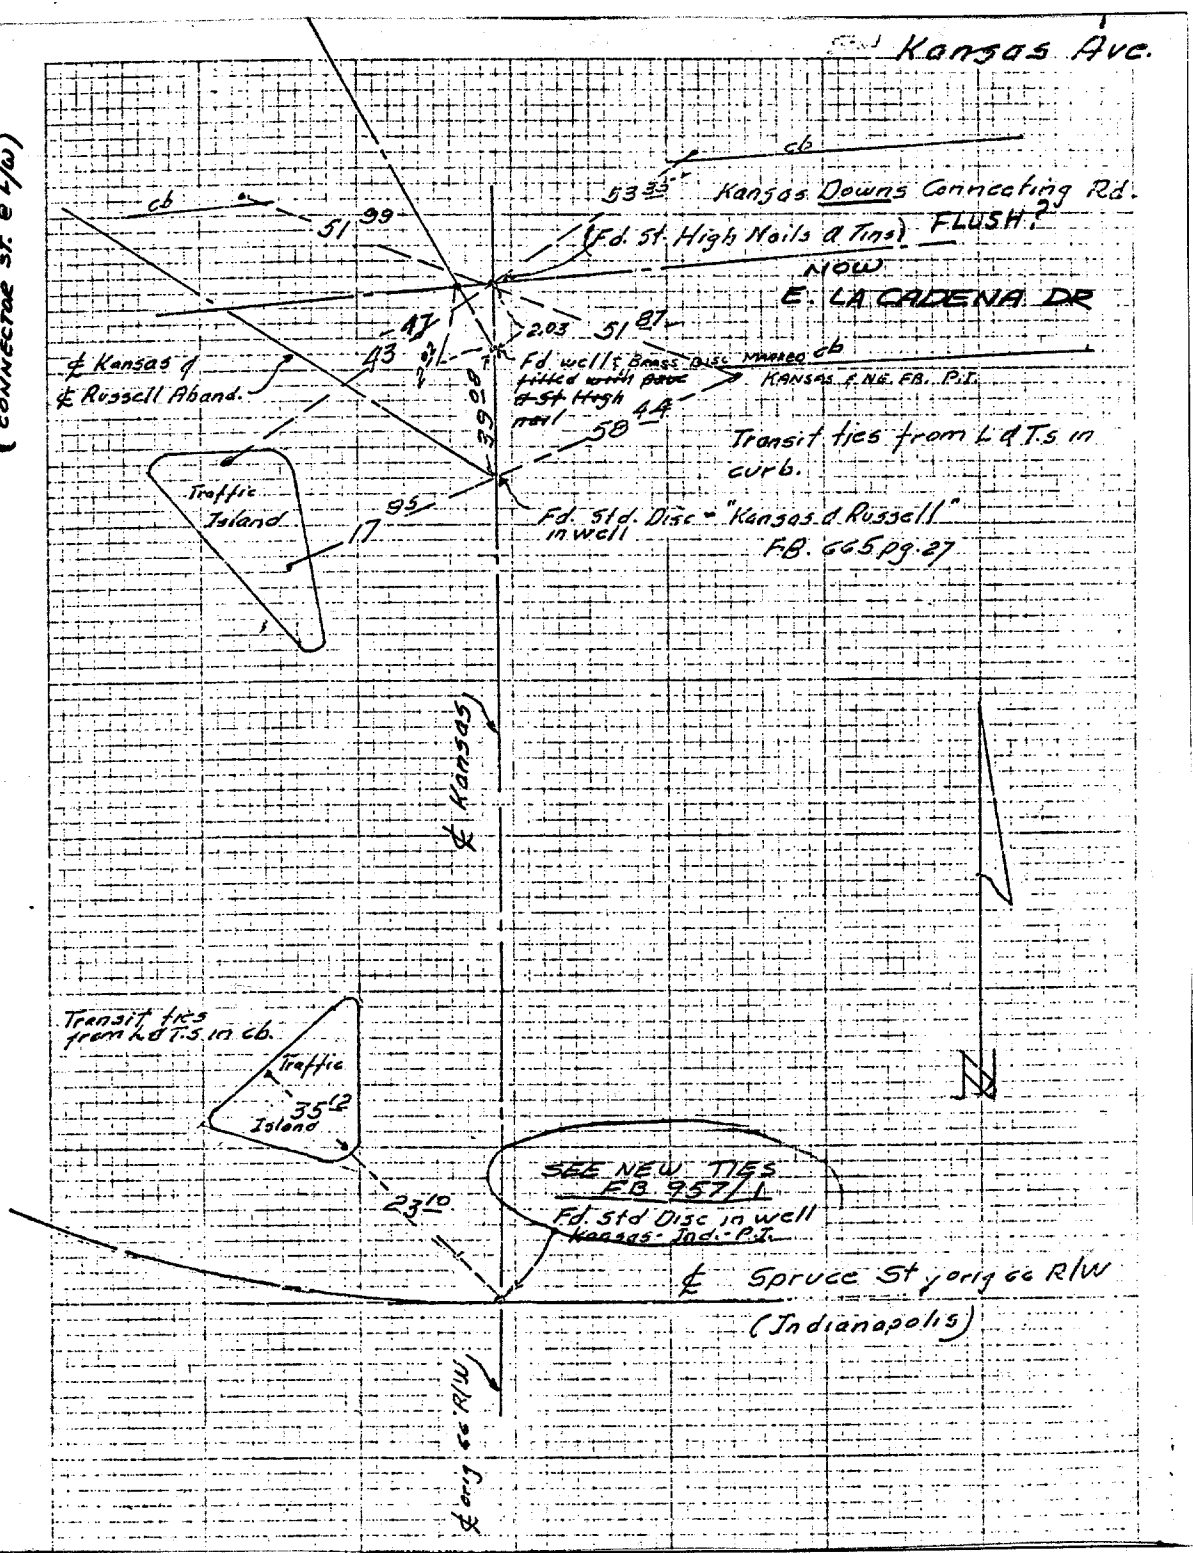 Kansas Ave.
(CONNECTOR ST. @ L/W)
cb
cb
53 35
Kansas Downs Connecting Rd.
51 99
(Fd. St. High Nails & Tins) FLUSH?
NOW
E. LA CADENA DR
47
43
2.03
51 87
cb
℄ Kansas &
℄ Russell Aband.
Fd well & BRASS DISC MARKED
fitted with pave
& St High
nail
KANSAS & NE. FB. P.I.
39 08
58 44
Transit ties from L & T.s in
curb.
Traffic
Island
17 95
Fd. Std. Disc - "Kansas & Russell"
in well
FB. 665 pg. 27
℄ Kansas
Transit ties
from L & T.s in cb.
Traffic
35 12
Island
N
SEE NEW TIES
FB 957/1
Fd. Std Disc in well
Kansas - Ind. - P.I.
23 10
℄ Spruce St, orig 66 R/W
(Indianapolis)
℄ orig 66' R/W